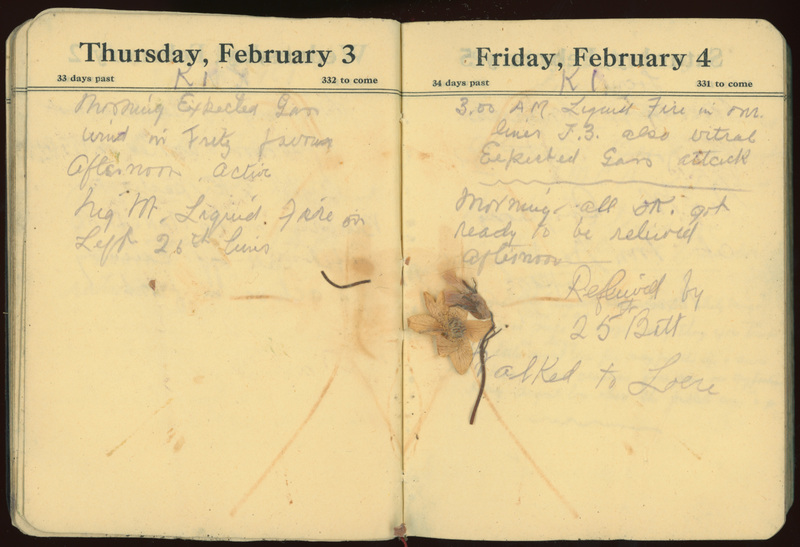 Thursday, February 3
33 days past
332 to come
Morning Expected Gas
wind in Fritz favour
Afternoon. Active
Night. Liquid. Fire on
Left 26th Lines
Friday, February 4
34 days past
331 to come
K 1
3.00 A.M. Liquid Fire in our
lines J.3. also
Expected Gas attack
Morning. all OK. got
ready to be relieved
afternoon
Relieved by
25th Batt
Walked to Locre